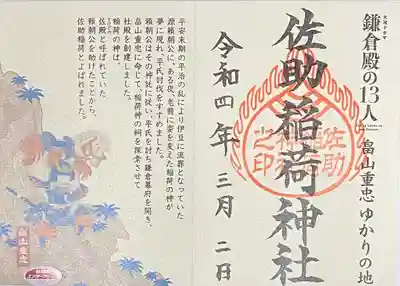 大河ドラマ
鎌倉殿の13人
畠山重忠 ゆかりの地
佐助稲荷神社
佐助稲荷神社之印
令和四年三月二日
平安末期の平治の乱により伊豆に流罪となっていた
源頼朝公に、ある夜、老翁に姿を変えた稲荷の神が
夢に現れ、平氏討伐をすすめました。
頼朝公はその神託に従い、平氏を討ち鎌倉幕府を開き、
畠山重忠に命じて、稲荷神の祠を探索させて
社殿を創建しました。
稲荷の神は、
佐殿と呼ばれていた
頼朝公を助けたことから、
佐助稲荷とよばれました。
畠山重忠